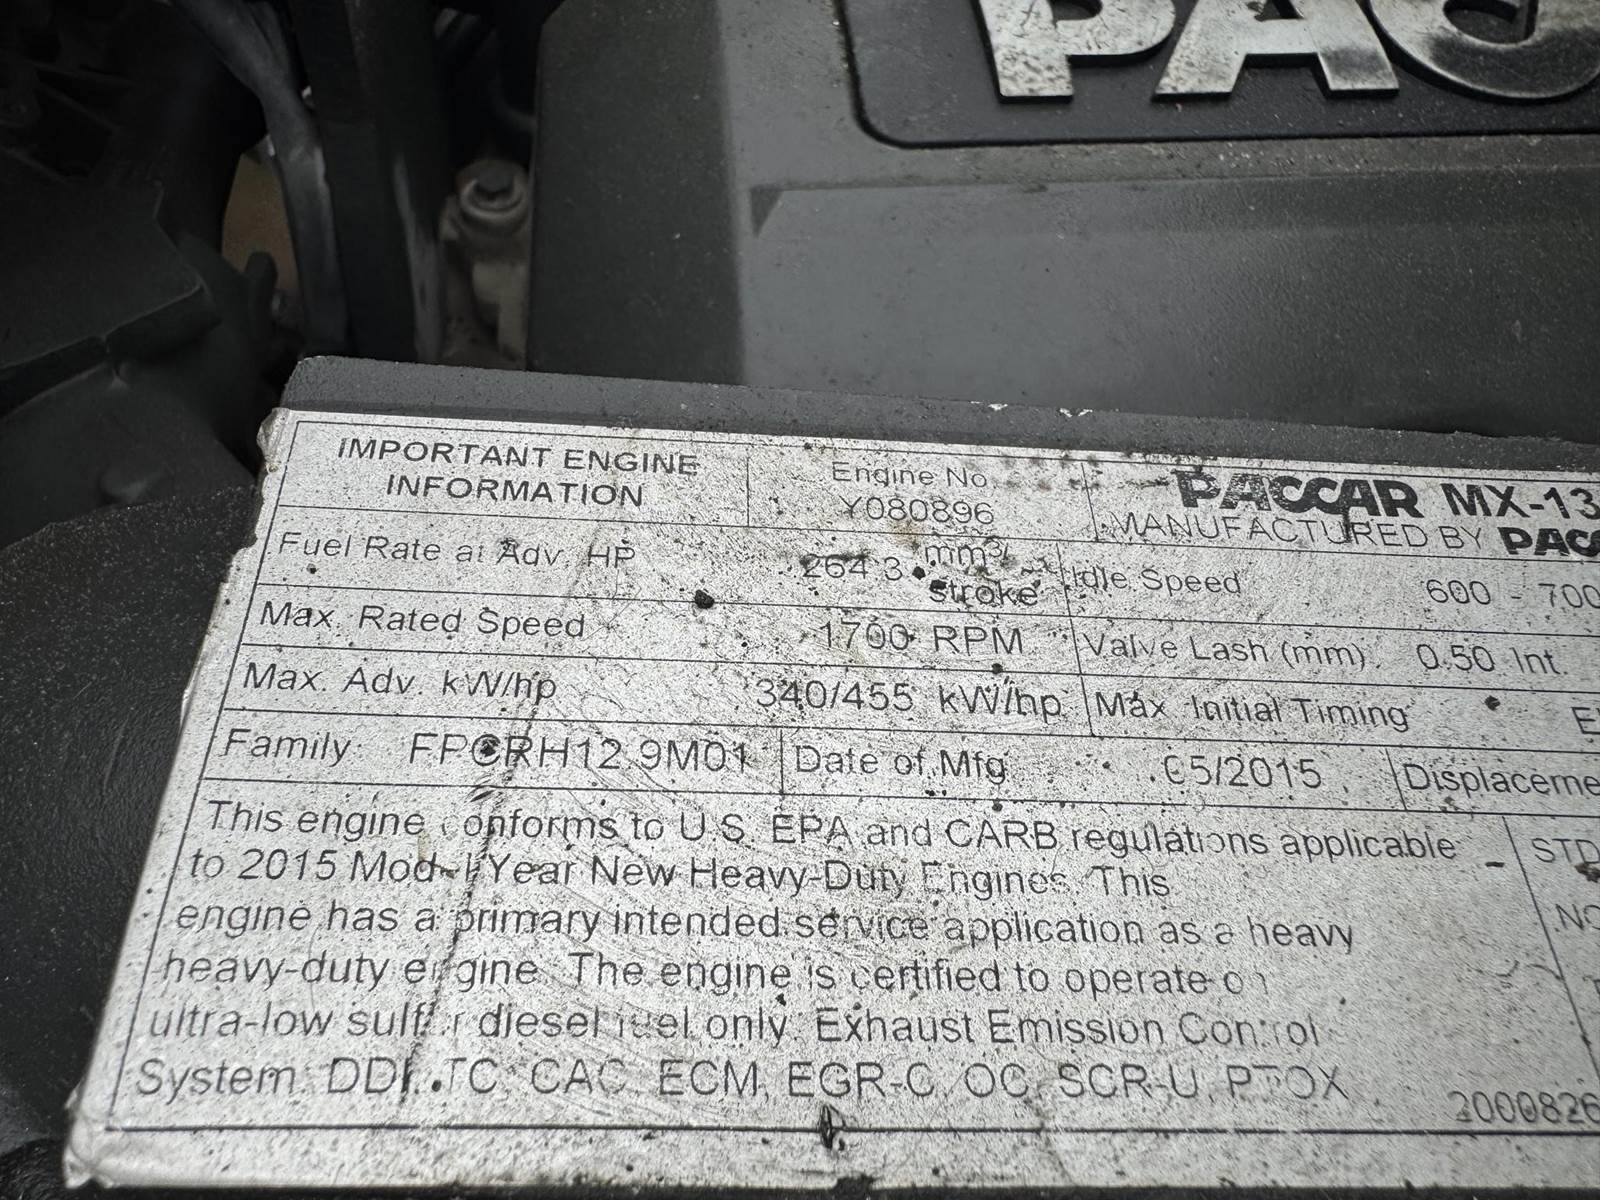 PACC
IMPORTANT ENGINE INFORMATION
Engine No
Y080896
PACCAR MX-13
MANUFACTURED BY PACC
Fuel Rate at Adv. HP 264.3 mm³/stroke
Idle Speed 600 - 700
Max. Rated Speed 1700 RPM
Valve Lash (mm). 0.50 Int.
Max. Adv. kW/hp 340/455 kW/hp
Max Initial Timing
Family: FPCRH12.9M01
Date of Mfg 05/2015
Displaceme
This engine conforms to U.S. EPA and CARB regulations applicable
to 2015 Model Year New Heavy-Duty Engines. This
engine has a primary intended service application as a heavy
heavy-duty engine. The engine is certified to operate on
ultra-low sulfur diesel fuel only. Exhaust Emission Control
System: DDI, TC, CAC, ECM, EGR-C, OC, SCR-U, PTOX
STD
NO
2000826